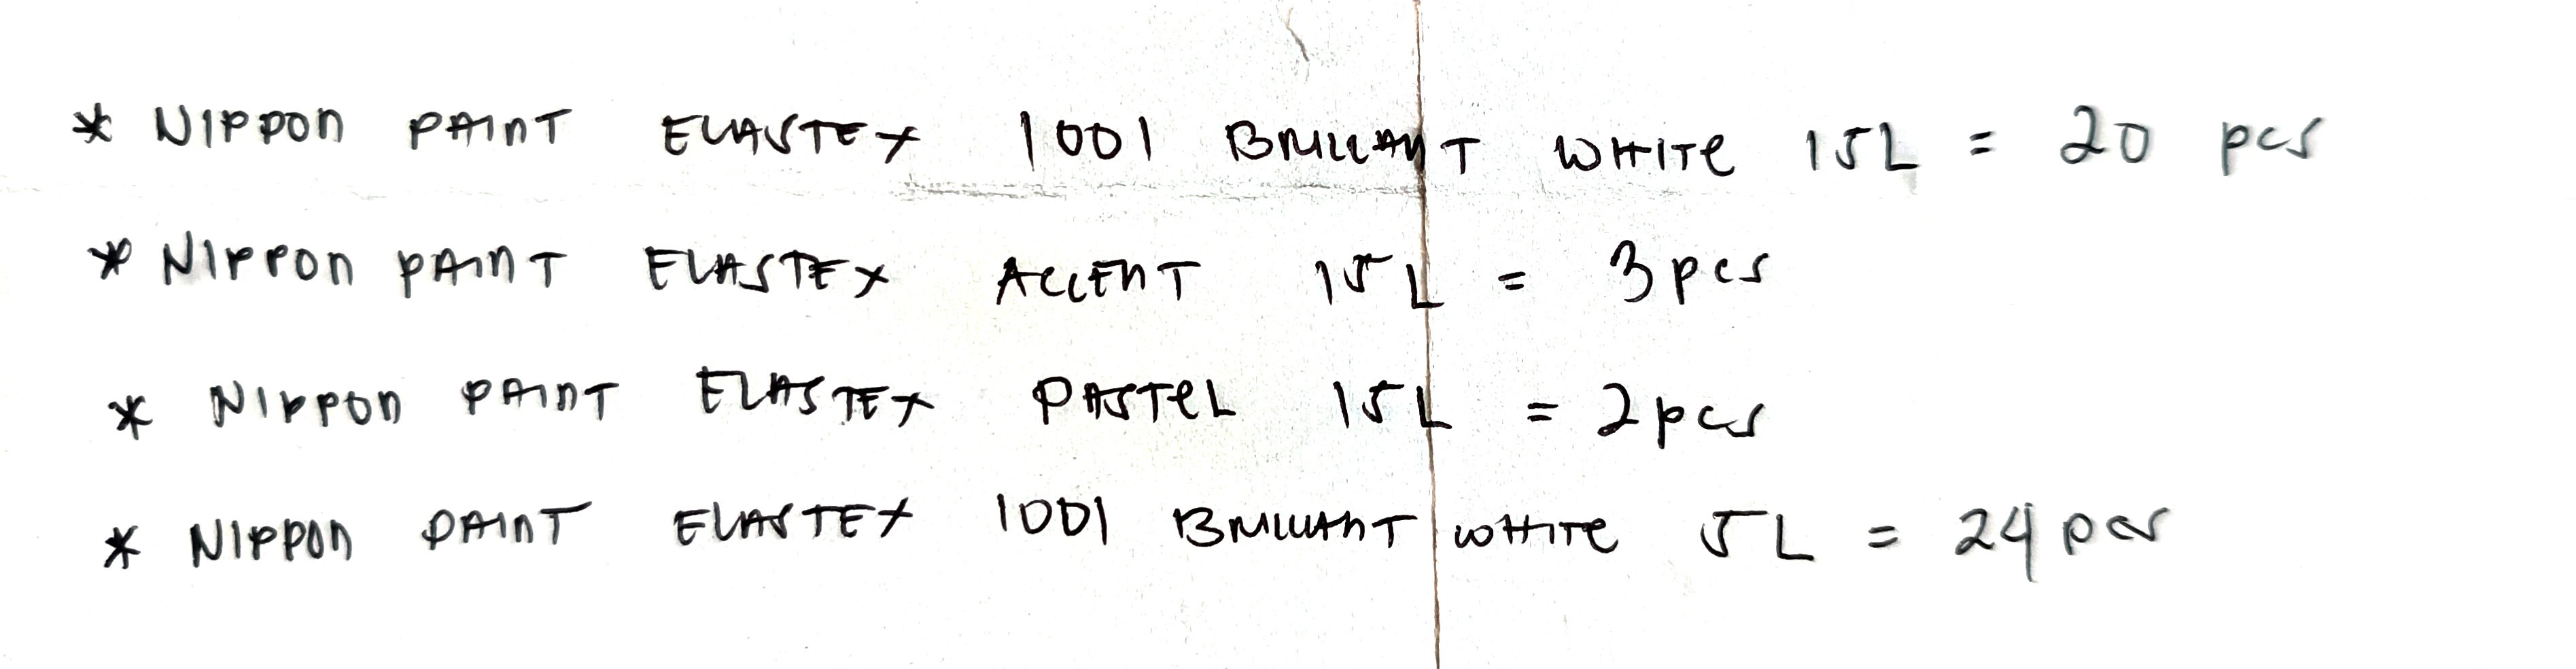 * NIPPON PAINT ELASTEX 1001 BRILLANT WHITE 15L = 20 pcs
* NIPPON PAINT ELASTEX ACCENT 15L = 3 pcs
* NIPPON PAINT ELASTEX PASTEL 15L = 2 pcs
* NIPPON PAINT ELASTEX 1001 BRILLIANT WHITE 5L = 24 pcs